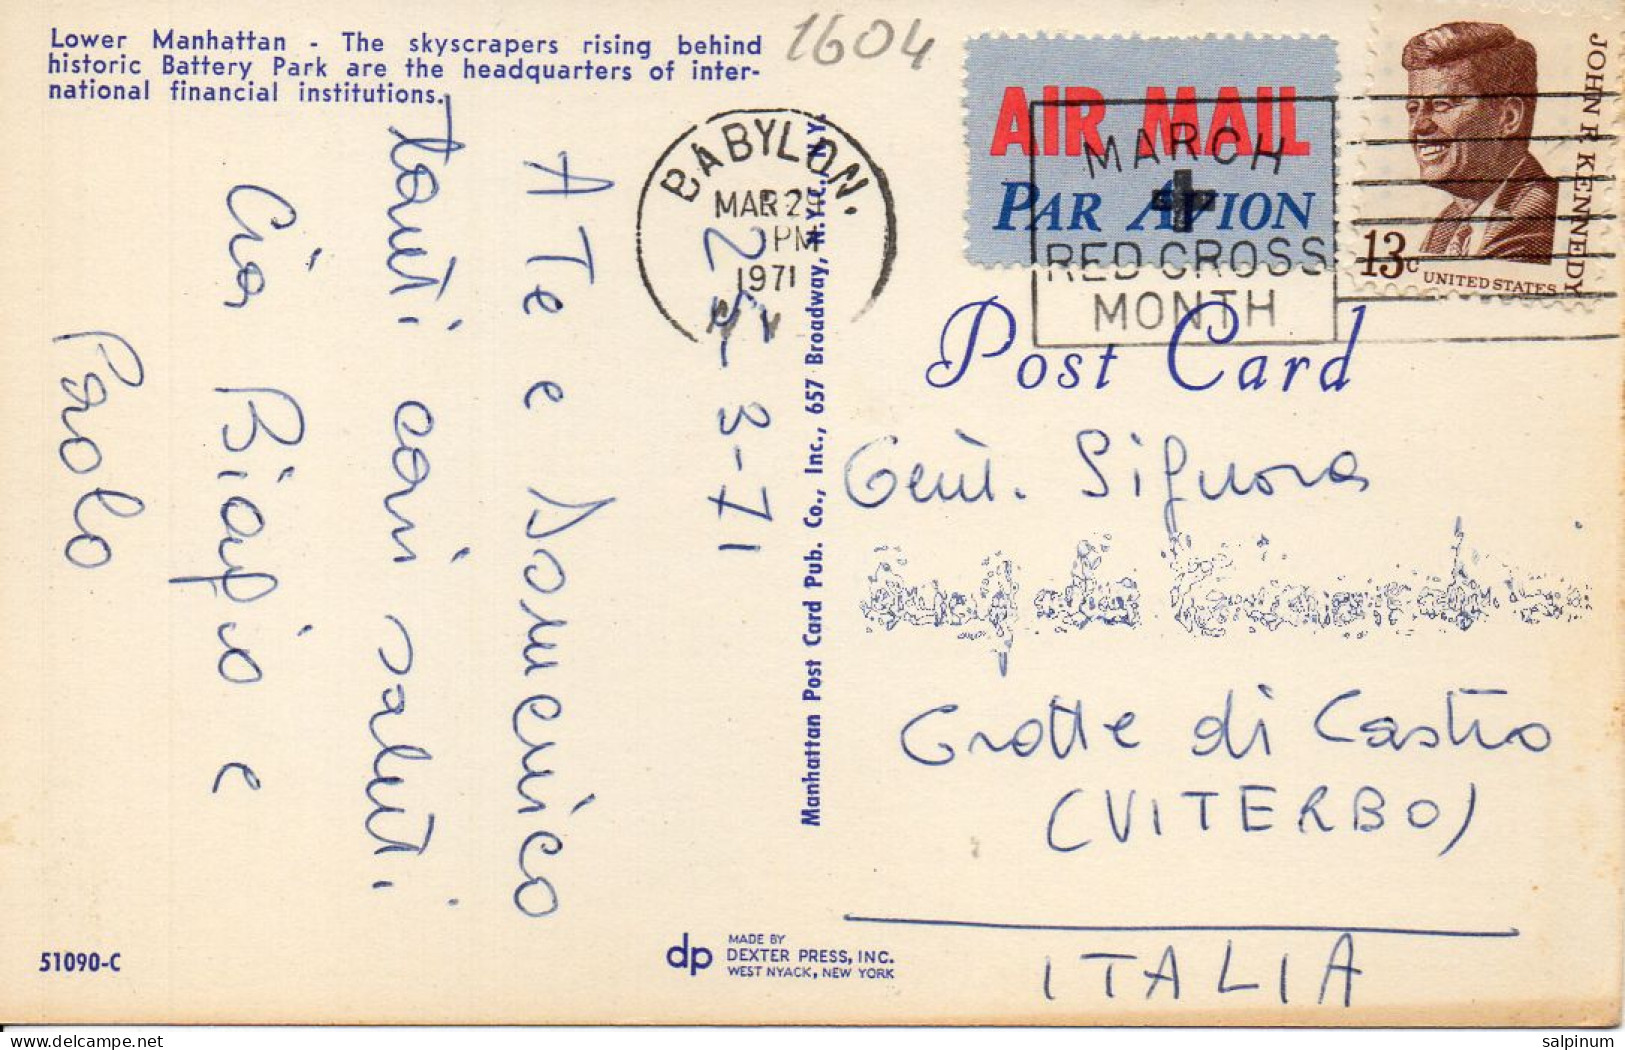 Lower Manhattan - The skyscrapers rising behind
historic Battery Park are the headquarters of inter-
national financial institutions.
1604
BABYLON, N.Y.
MAR 29
PM
1971
AIR MAIL
PAR AVION
MARCH
RED CROSS
MONTH
JOHN F. KENNEDY
13c
UNITED STATES
Post Card
25-3-71
A Te e Domenico
tanti cari saluti.
Ciao Biagio e
Paolo
Manhattan Post Card Pub. Co., Inc., 657 Broadway, N.Y.C., N.Y.
Gent. Signora
Grotte di Castro
(VITERBO)
ITALIA
51090-C
dp
MADE BY
DEXTER PRESS, INC.
WEST NYACK, NEW YORK
salpinum